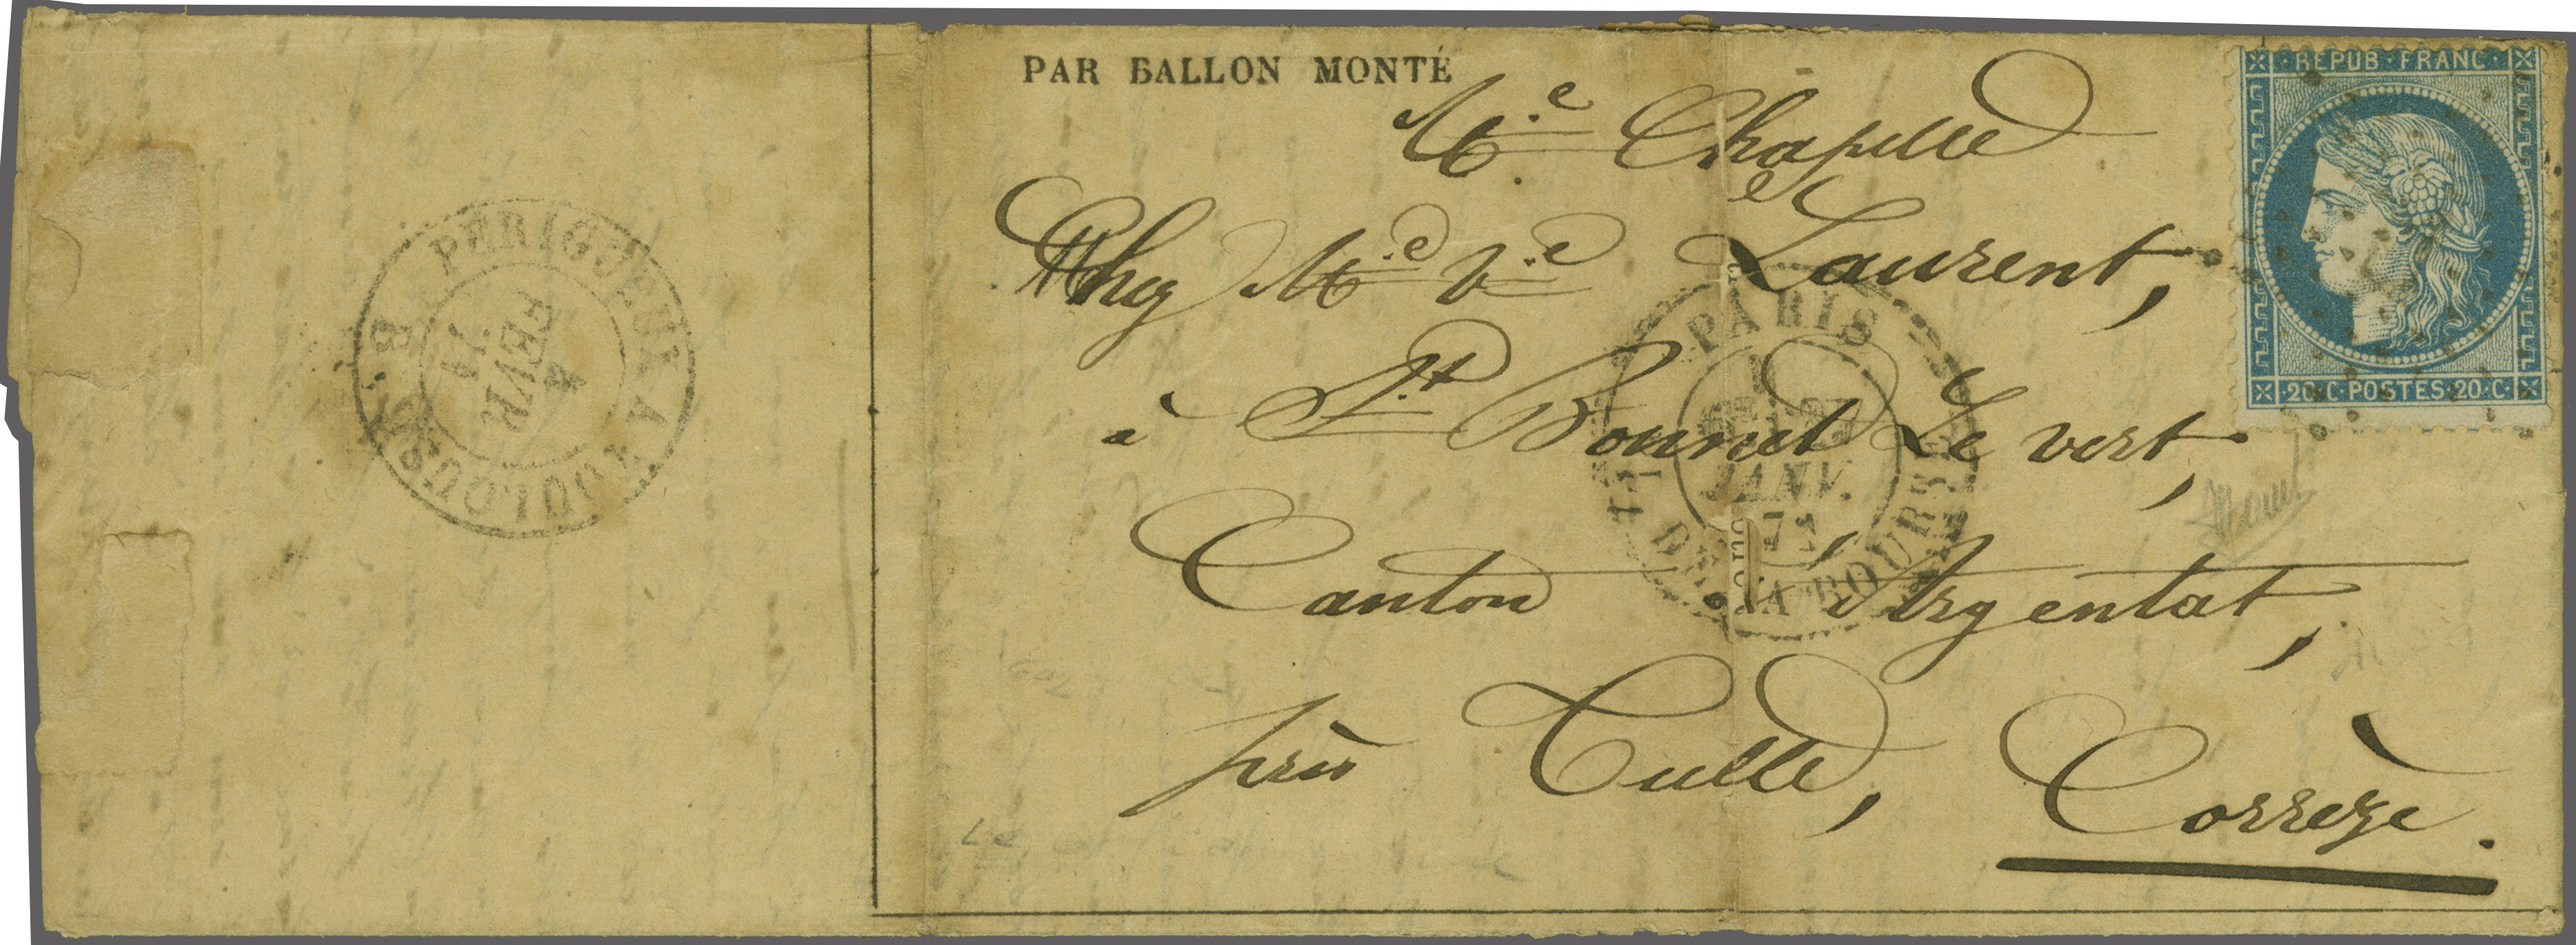 PAR BALLON MONTÉ
M.e Chapelle
Chez M.e V.e Laurent,
à St Bonnet Le vert,
Canton d'Argentat,
près Tulle, Corrèze.
REPUB·FRANC·
·20·C·POSTES·20·C·
PARIS
JANV.
71
PL. DE LA BOURSE
PERIGUEUX A TOULOUSE
4
FEVR
71